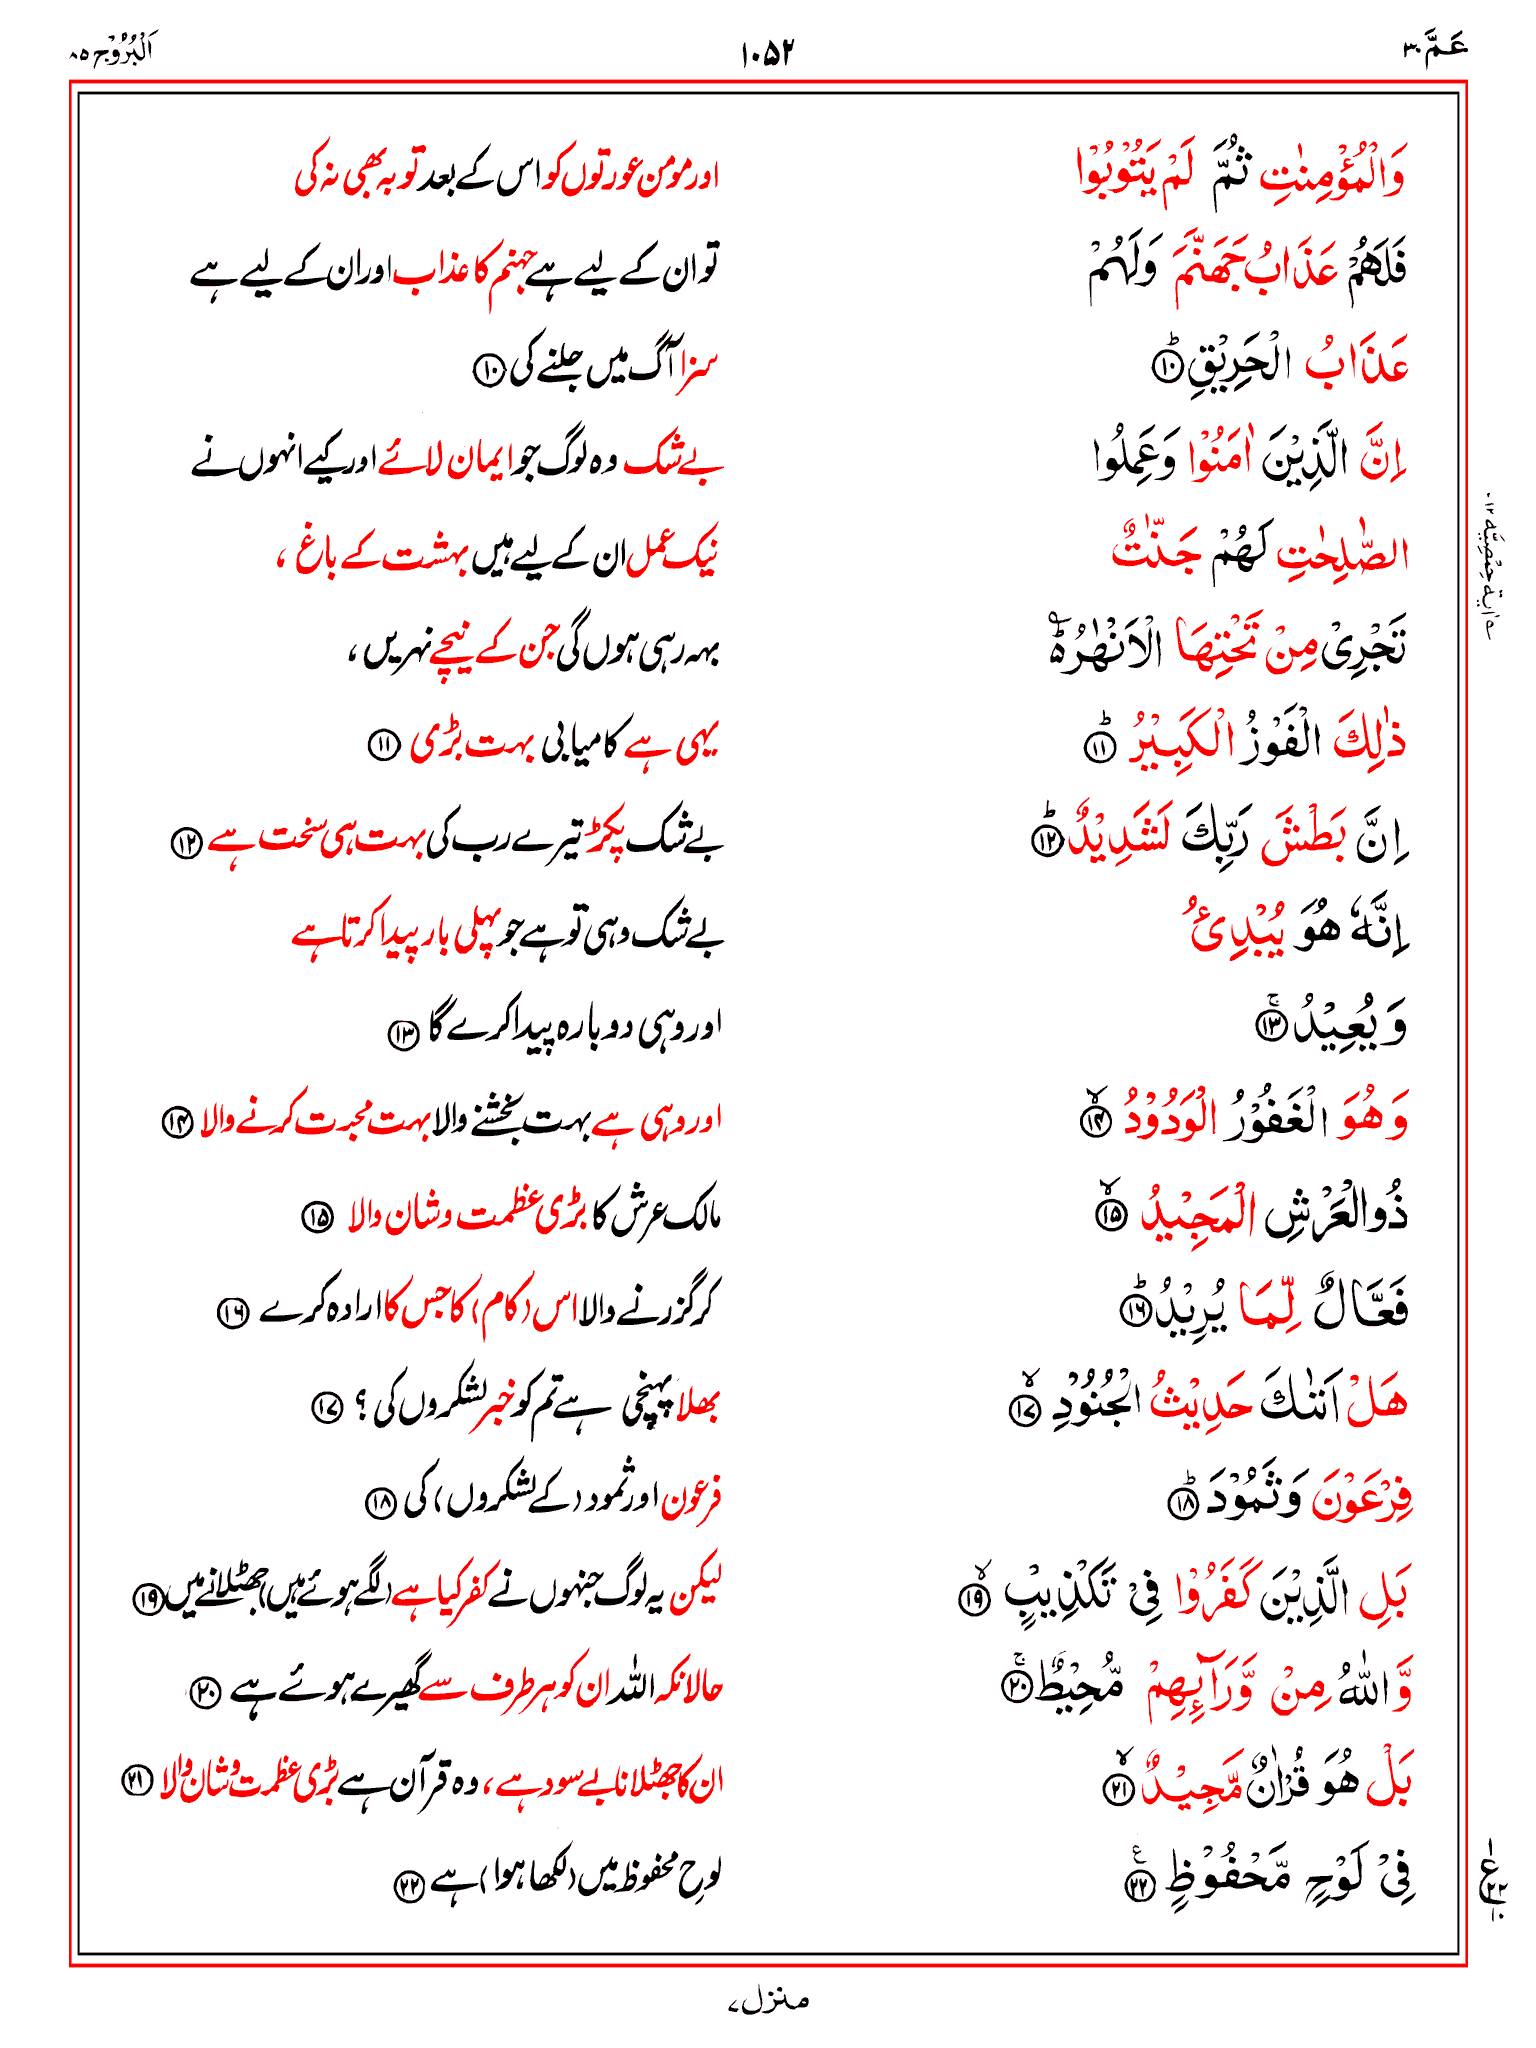 عَمَّ ۳۰
۱۰۵۲
اَلْبُرُوْج ۸۵
وَالْمُؤْمِنٰتِ ثُمَّ لَمْ يَتُوْبُوْا
اور مومن عورتوں کو اس کے بعد توبہ بھی نہ کی
فَلَهُمْ عَذَابُ جَهَنَّمَ وَلَهُمْ
تو ان کے لیے ہے جہنم کا عذاب اور ان کے لیے ہے
عَذَابُ الْحَرِيْقِ ؕ ۱۰
سزا آگ میں جلنے کی ۱۰
اِنَّ الَّذِيْنَ اٰمَنُوْا وَعَمِلُوا
بے شک وہ لوگ جو ایمان لائے اور کیے انہوں نے
الصّٰلِحٰتِ لَهُمْ جَنّٰتٌ
نیک عمل ان کے لیے ہیں بہشت کے باغ ،
تَجْرِىْ مِنْ تَحْتِهَا الْاَنْهٰرُ ؕ۵
بہہ رہی ہوں گی جن کے نیچے نہریں ،
ذٰلِكَ الْفَوْزُ الْكَبِيْرُ ؕ ۱۱
یہی ہے کامیابی بہت بڑی ۱۱
اِنَّ بَطْشَ رَبِّكَ لَشَدِيْدٌ ؕ ۱۲
بے شک پکڑ تیرے رب کی بہت ہی سخت ہے ۱۲
اِنَّهٗ هُوَ يُبْدِئُ
بے شک وہی تو ہے جو پہلی بار پیدا کرتا ہے
وَ يُعِيْدُ ۚ ۱۳
اور وہی دوبارہ پیدا کرے گا ۱۳
وَهُوَ الْغَفُوْرُ الْوَدُوْدُ ۙ ۱۴
اور وہی ہے بہت بخشنے والا بہت محبت کرنے والا ۱۴
ذُو الْعَرْشِ الْمَجِيْدُ ۙ ۱۵
مالک عرش کا بڑی عظمت و شان والا ۱۵
فَعَّالٌ لِّمَا يُرِيْدُ ؕ ۱۶
کر گزرنے والا اس (کام) کا جس کا ارادہ کرے ۱۶
هَلْ اَتٰىكَ حَدِيْثُ الْجُنُوْدِ ۙ ۱۷
بھلا پہنچی ہے تم کو خبر لشکروں کی ؟ ۱۷
فِرْعَوْنَ وَثَمُوْدَ ؕ ۱۸
فرعون اور ثمود (کے لشکروں) کی ۱۸
بَلِ الَّذِيْنَ كَفَرُوْا فِىْ تَكْذِيْبٍ ۙ ۱۹
لیکن یہ لوگ جنہوں نے کفر کیا ہے (لگے ہوئے ہیں) جھٹلانے میں ۱۹
وَّاللّٰهُ مِنْ وَّرَآئِهِمْ مُّحِيْطٌ ۚ ۲۰
حالانکہ اللہ ان کو ہر طرف سے گھیرے ہوئے ہے ۲۰
بَلْ هُوَ قُرْاٰنٌ مَّجِيْدٌ ۙ ۲۱
ان کا جھٹلانا بے سود ہے ، وہ قرآن ہے بڑی عظمت و شان والا ۲۱
فِىْ لَوْحٍ مَّحْفُوْظٍ ۲۲ ع
لوحِ محفوظ میں (لکھا ہوا) ہے ۲۲
منزل ۷